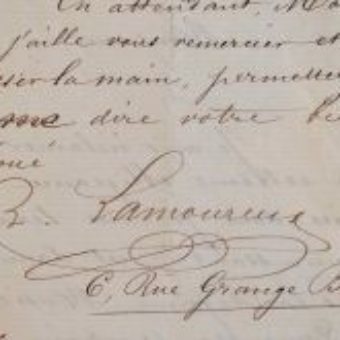 En attendant,
j'aille vous remercier et
la main, permettez
me dire votre
Lamoureux
6, Rue Grange